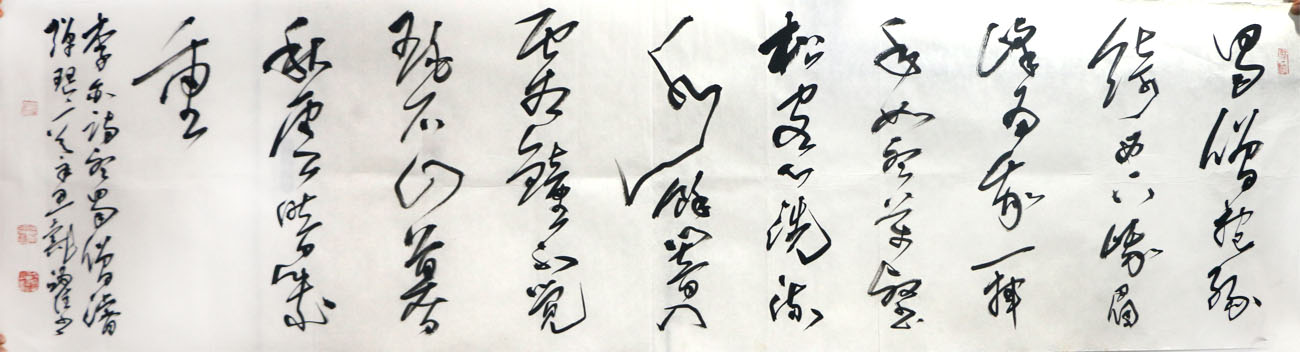 蜀僧抱綠
綺西下峨眉
峰為我一揮
手如聽萬壑
松客心洗流
水餘響入
霜鐘不覺
碧山暮
秋雲暗幾
重
李白詩聽蜀僧濬
彈琴